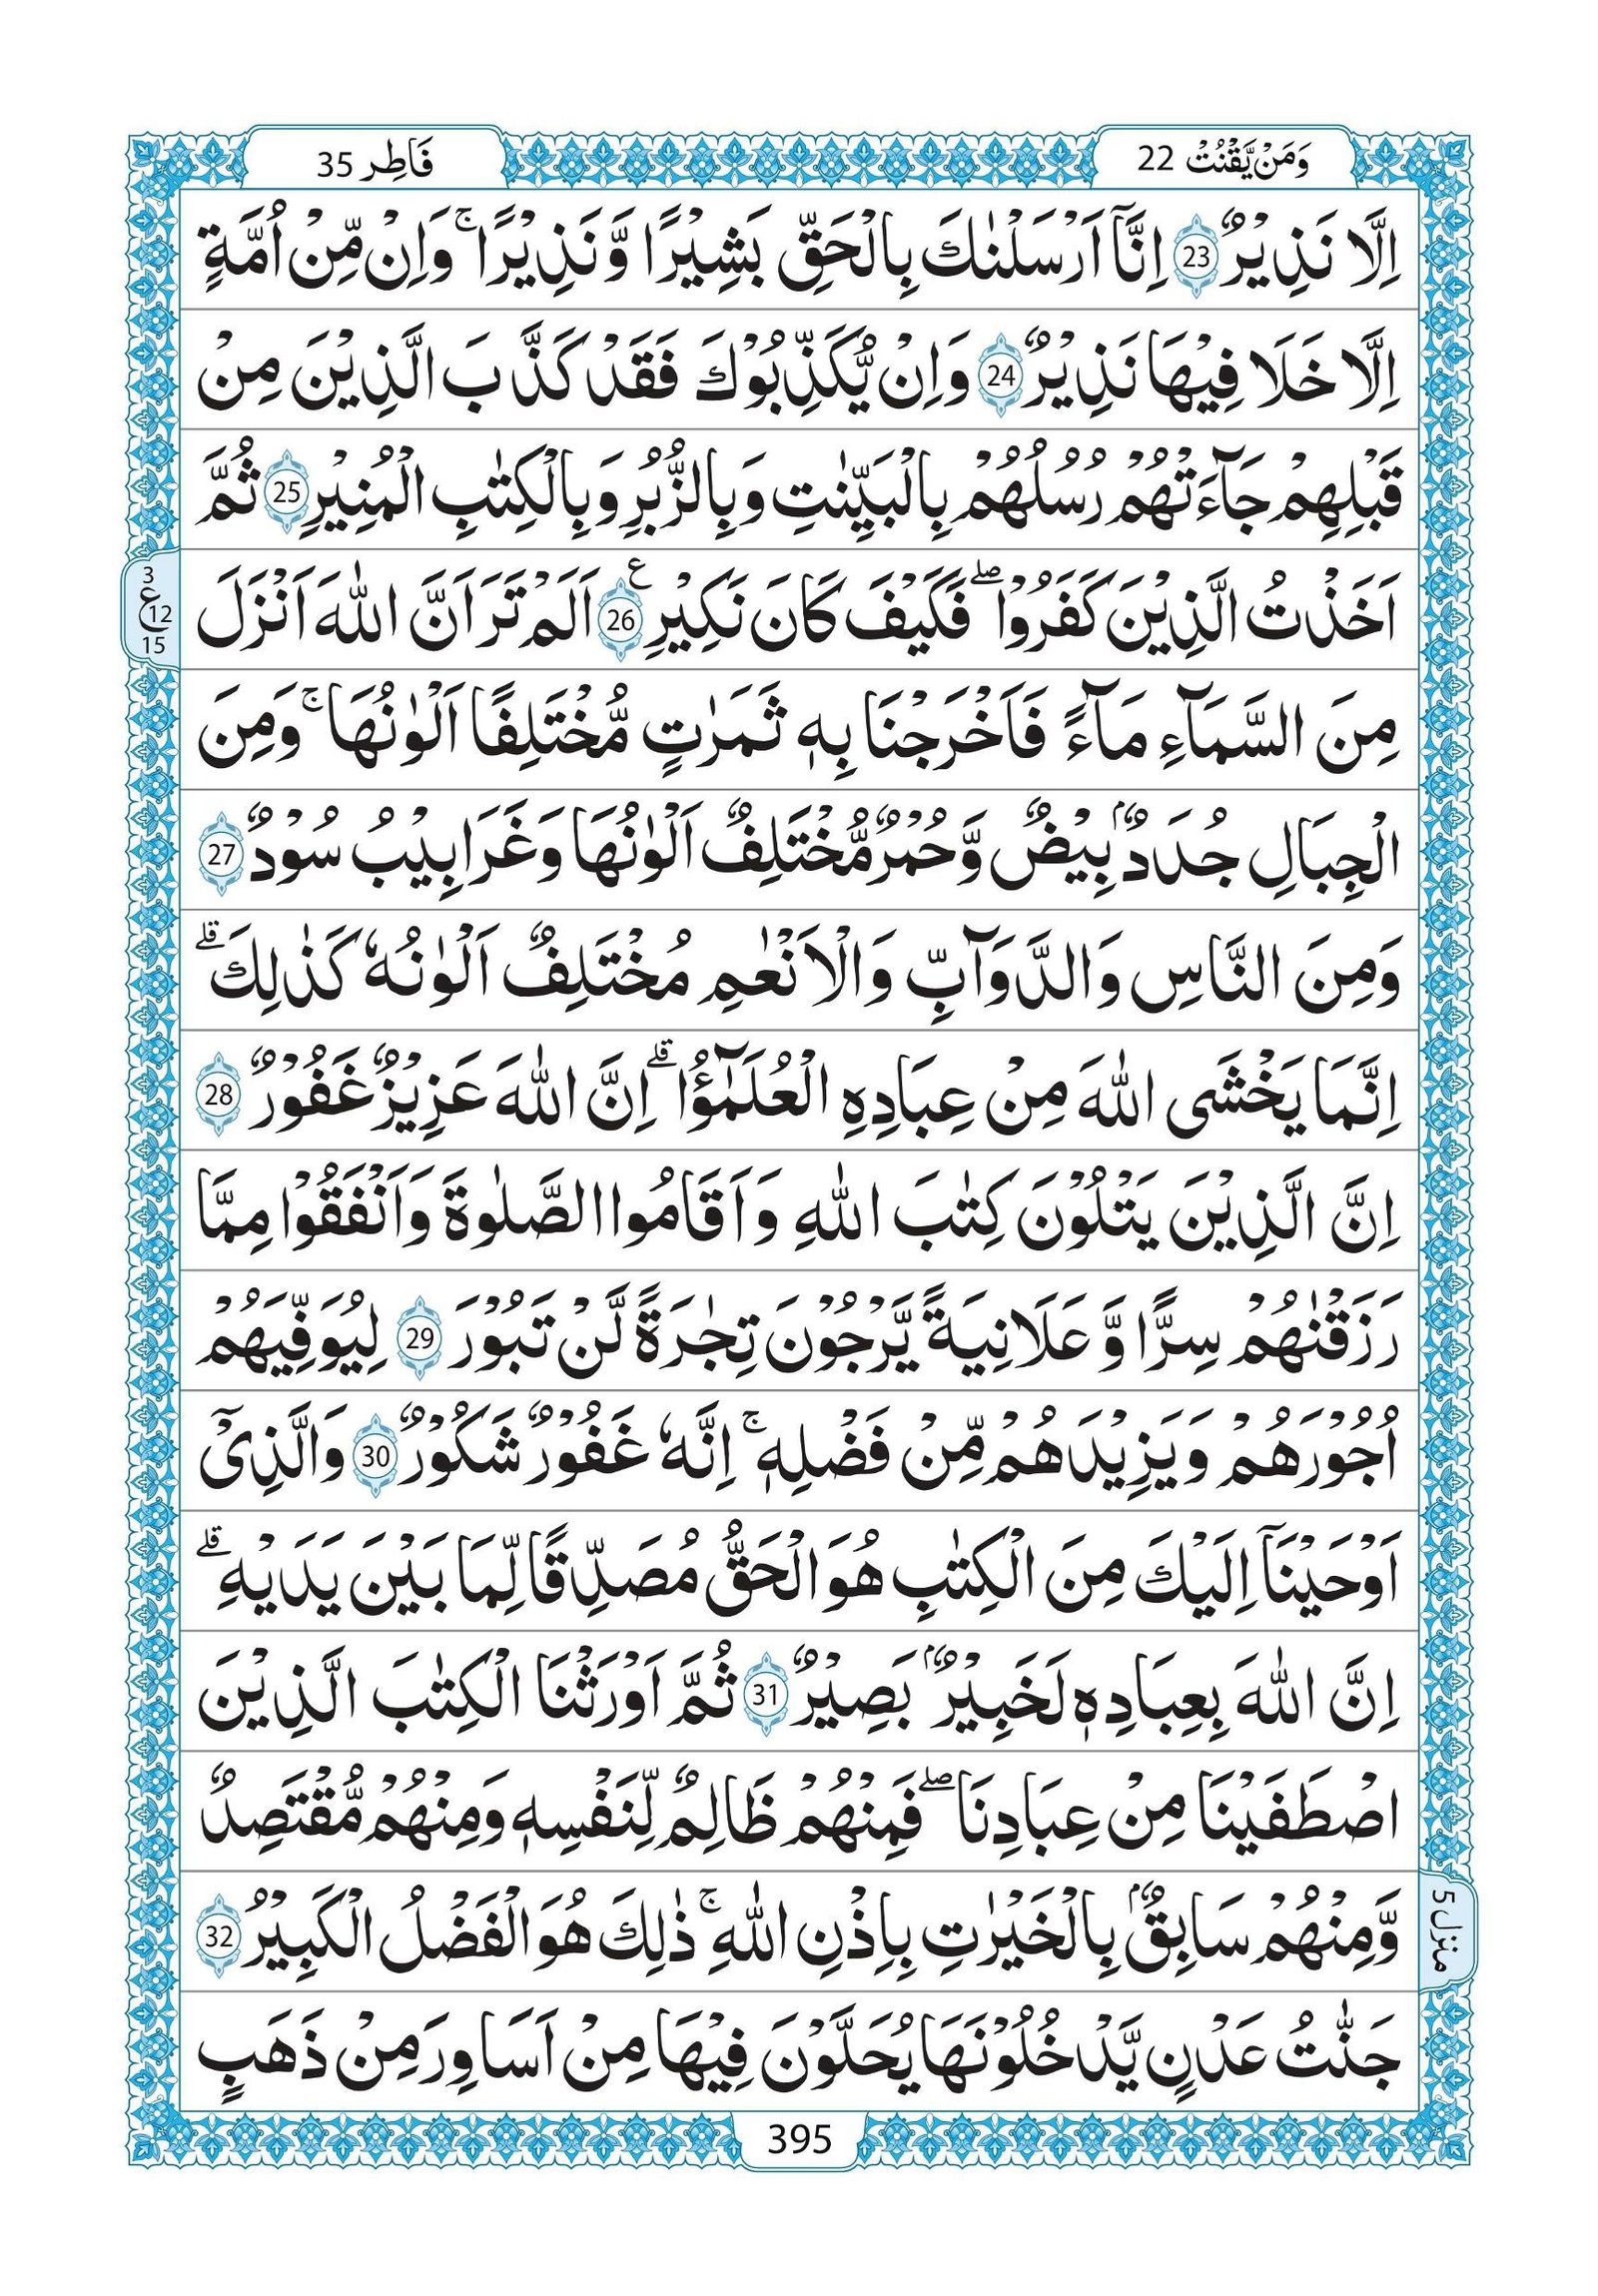 وَمَنْ يَّقْنُتْ 22
فَاطِر 35
اِلَّا نَذِيْرٌ 23 اِنَّآ اَرْسَلْنٰكَ بِالْحَقِّ بَشِيْرًا وَّ نَذِيْرًا ۚ وَاِنْ مِّنْ اُمَّةٍ
اِلَّا خَلَا فِيْهَا نَذِيْرٌ 24 وَاِنْ يُّكَذِّبُوْكَ فَقَدْ كَذَّبَ الَّذِيْنَ مِنْ
قَبْلِهِمْ جَآءَتْهُمْ رُسُلُهُمْ بِالْبَيِّنٰتِ وَبِالزُّبُرِ وَبِالْكِتٰبِ الْمُنِيْرِ 25 ثُمَّ
اَخَذْتُ الَّذِيْنَ كَفَرُوْا ۖ فَكَيْفَ كَانَ نَكِيْرِ ع 26 اَلَمْ تَرَ اَنَّ اللّٰهَ اَنْزَلَ
3
ع 12
15
مِنَ السَّمَآءِ مَآءً فَاَخْرَجْنَا بِهٖ ثَمَرٰتٍ مُّخْتَلِفًا اَلْوٰنُهَا ۚ وَمِنَ
الْجِبَالِ جُدَدٌۢ بِيْضٌ وَّحُمْرٌ مُّخْتَلِفٌ اَلْوٰنُهَا وَغَرَابِيْبُ سُوْدٌ 27
وَمِنَ النَّاسِ وَالدَّوَآبِّ وَالْاَنْعٰمِ مُخْتَلِفٌ اَلْوٰنُهٗ كَذٰلِكَ ۗ
اِنَّمَا يَخْشَى اللّٰهَ مِنْ عِبَادِهِ الْعُلَمٰٓؤُا ۗ اِنَّ اللّٰهَ عَزِيْزٌ غَفُوْرٌ 28
اِنَّ الَّذِيْنَ يَتْلُوْنَ كِتٰبَ اللّٰهِ وَاَقَامُوا الصَّلٰوةَ وَاَنْفَقُوْا مِمَّا
رَزَقْنٰهُمْ سِرًّا وَّ عَلَانِيَةً يَّرْجُوْنَ تِجٰرَةً لَّنْ تَبُوْرَ 29 لِيُوَفِّيَهُمْ
اُجُوْرَهُمْ وَيَزِيْدَهُمْ مِّنْ فَضْلِهٖ ۚ اِنَّهٗ غَفُوْرٌ شَكُوْرٌ 30 وَالَّذِيْٓ
اَوْحَيْنَآ اِلَيْكَ مِنَ الْكِتٰبِ هُوَ الْحَقُّ مُصَدِّقًا لِّمَا بَيْنَ يَدَيْهِ ۗ
اِنَّ اللّٰهَ بِعِبَادِهٖ لَخَبِيْرٌۢ بَصِيْرٌ 31 ثُمَّ اَوْرَثْنَا الْكِتٰبَ الَّذِيْنَ
اصْطَفَيْنَا مِنْ عِبَادِنَا ۖ فَمِنْهُمْ ظَالِمٌ لِّنَفْسِهٖ وَمِنْهُمْ مُّقْتَصِدٌ
وَّمِنْهُمْ سَابِقٌۢ بِالْخَيْرٰتِ بِاِذْنِ اللّٰهِ ۚ ذٰلِكَ هُوَ الْفَضْلُ الْكَبِيْرُ 32
منزل 5
جَنّٰتُ عَدْنٍ يَّدْخُلُوْنَهَا يُحَلَّوْنَ فِيْهَا مِنْ اَسَاوِرَ مِنْ ذَهَبٍ
395